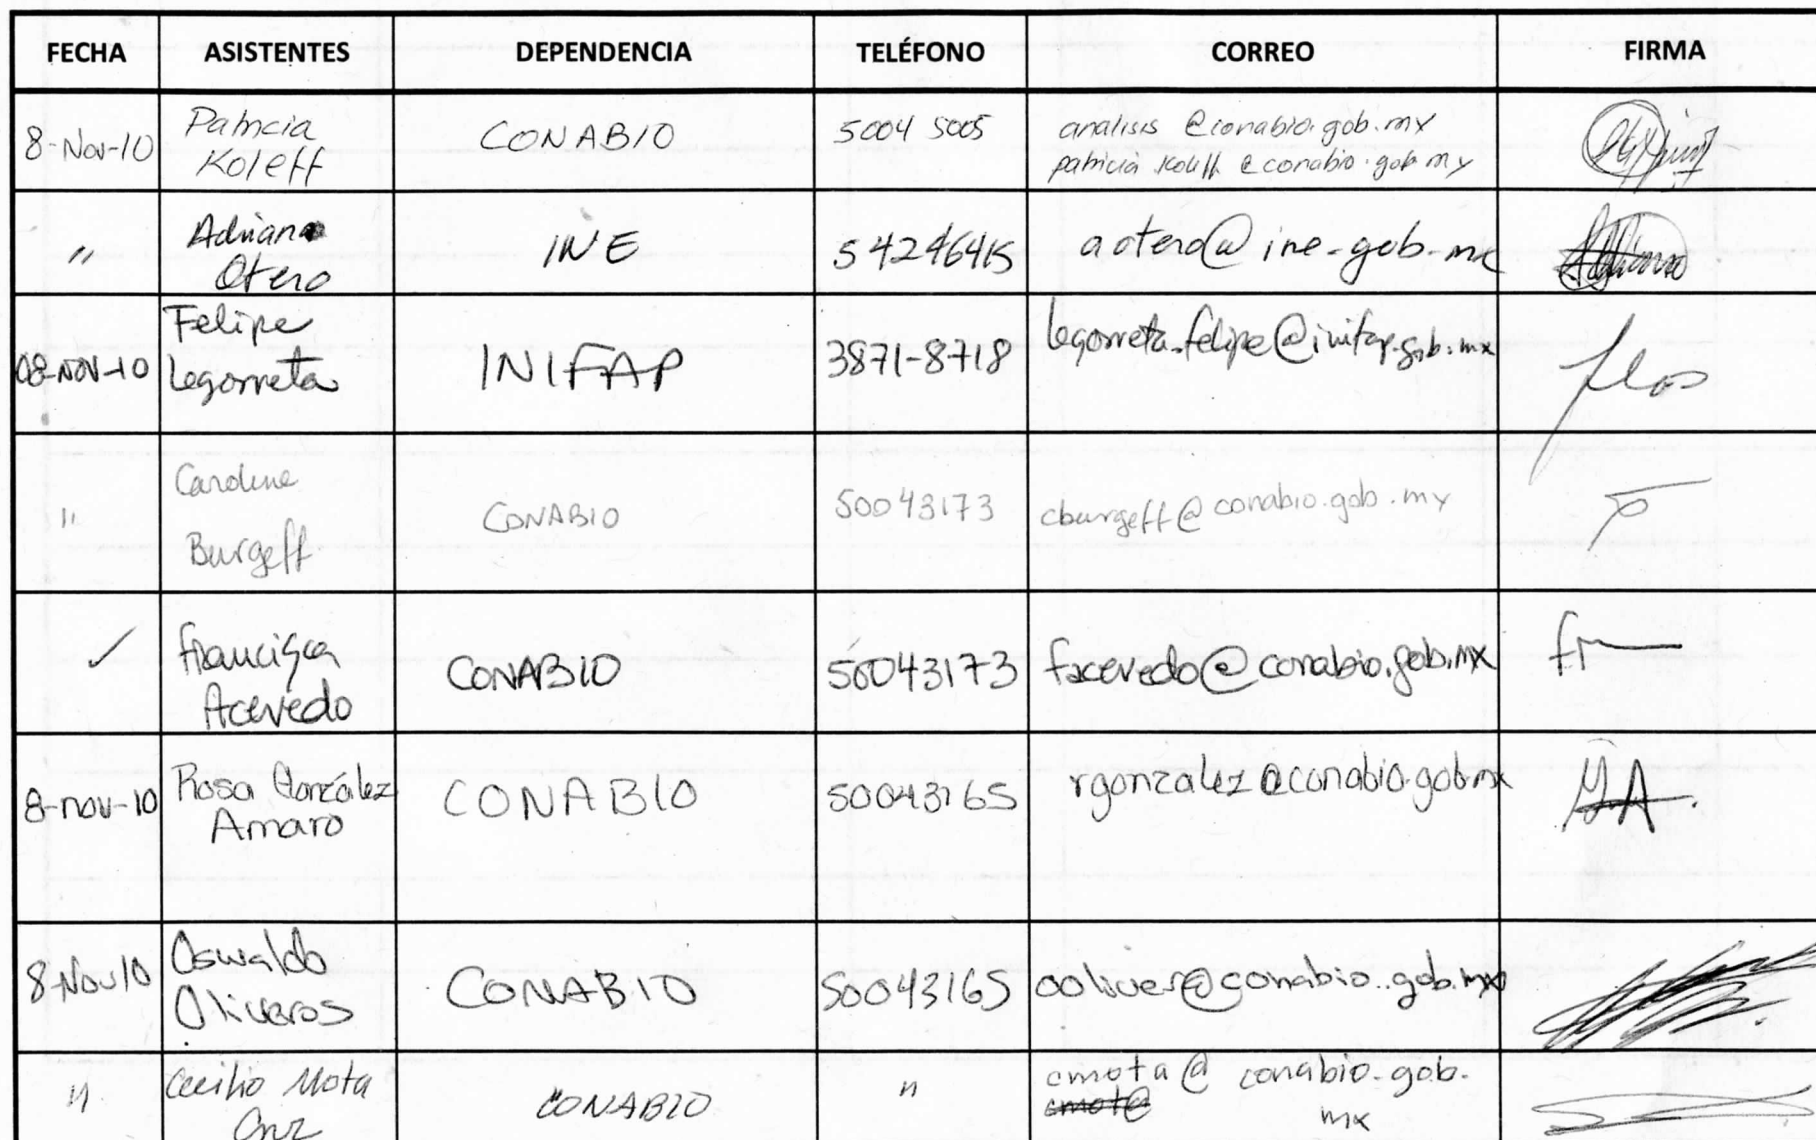 FECHA ASISTENTES DEPENDENCIA TELÉFONO CORREO FIRMA
8-Nov-10 Patricia Koleff CONABIO 5004 5005 analisis @conabio.gob.mx
patricia koleff @conabio.gob.mx
" Adriana Otero INE 54246415 aotero@ine.gob.mx
08-NOV-10 Felipe Legorreta INIFAP 3871-8718 legorreta.felipe@inifap.gob.mx
" Caroline Burgeff CONABIO 50043173 cburgeff@conabio.gob.mx
✓ Francisca Acevedo CONABIO 50043173 facevedo@conabio.gob.mx
8-nov-10 Rosa González Amaro CONABIO 50043165 rgonzalez@conabio.gob.mx
8-Nov10 Oswaldo Oliveros CONABIO 50043165 ooliver@conabio..gob.mx
" Cecilio Mota Cruz CONABIO " cmota@ conabio.gob.
cmot@ mx